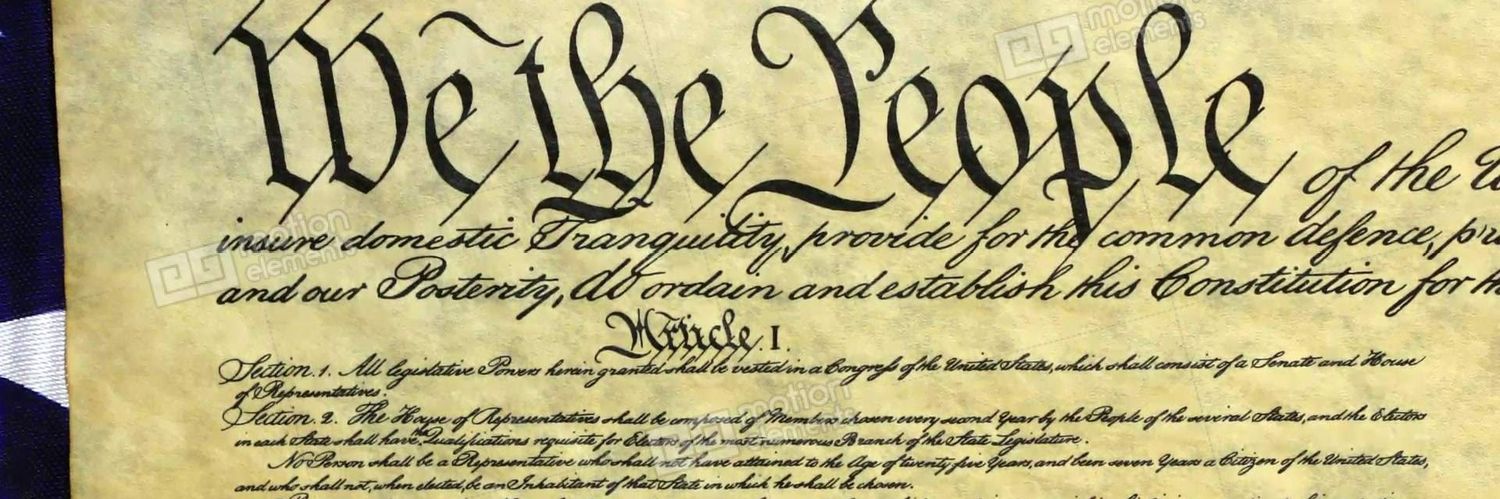 We the People of the
insure domestic Tranquility, provide for the common defence,
and our Posterity, do ordain and establish this Constitution for
Article. I.
Section. 1. All legislative Powers herein granted shall be vested in a Congress of the United States, which shall consist of a Senate and House
of Representatives.
Section. 2. The House of Representatives shall be composed of Members chosen every second Year by the People of the several States, and the Electors
in each State shall have the Qualifications requisite for Electors of the most numerous Branch of the State Legislature.
No Person shall be a Representative who shall not have attained to the Age of twenty five Years, and been seven Years a Citizen of the United States,
and who shall not, when elected, be an Inhabitant of that State in which he shall be chosen.
motion elements
motion elements
motion elements